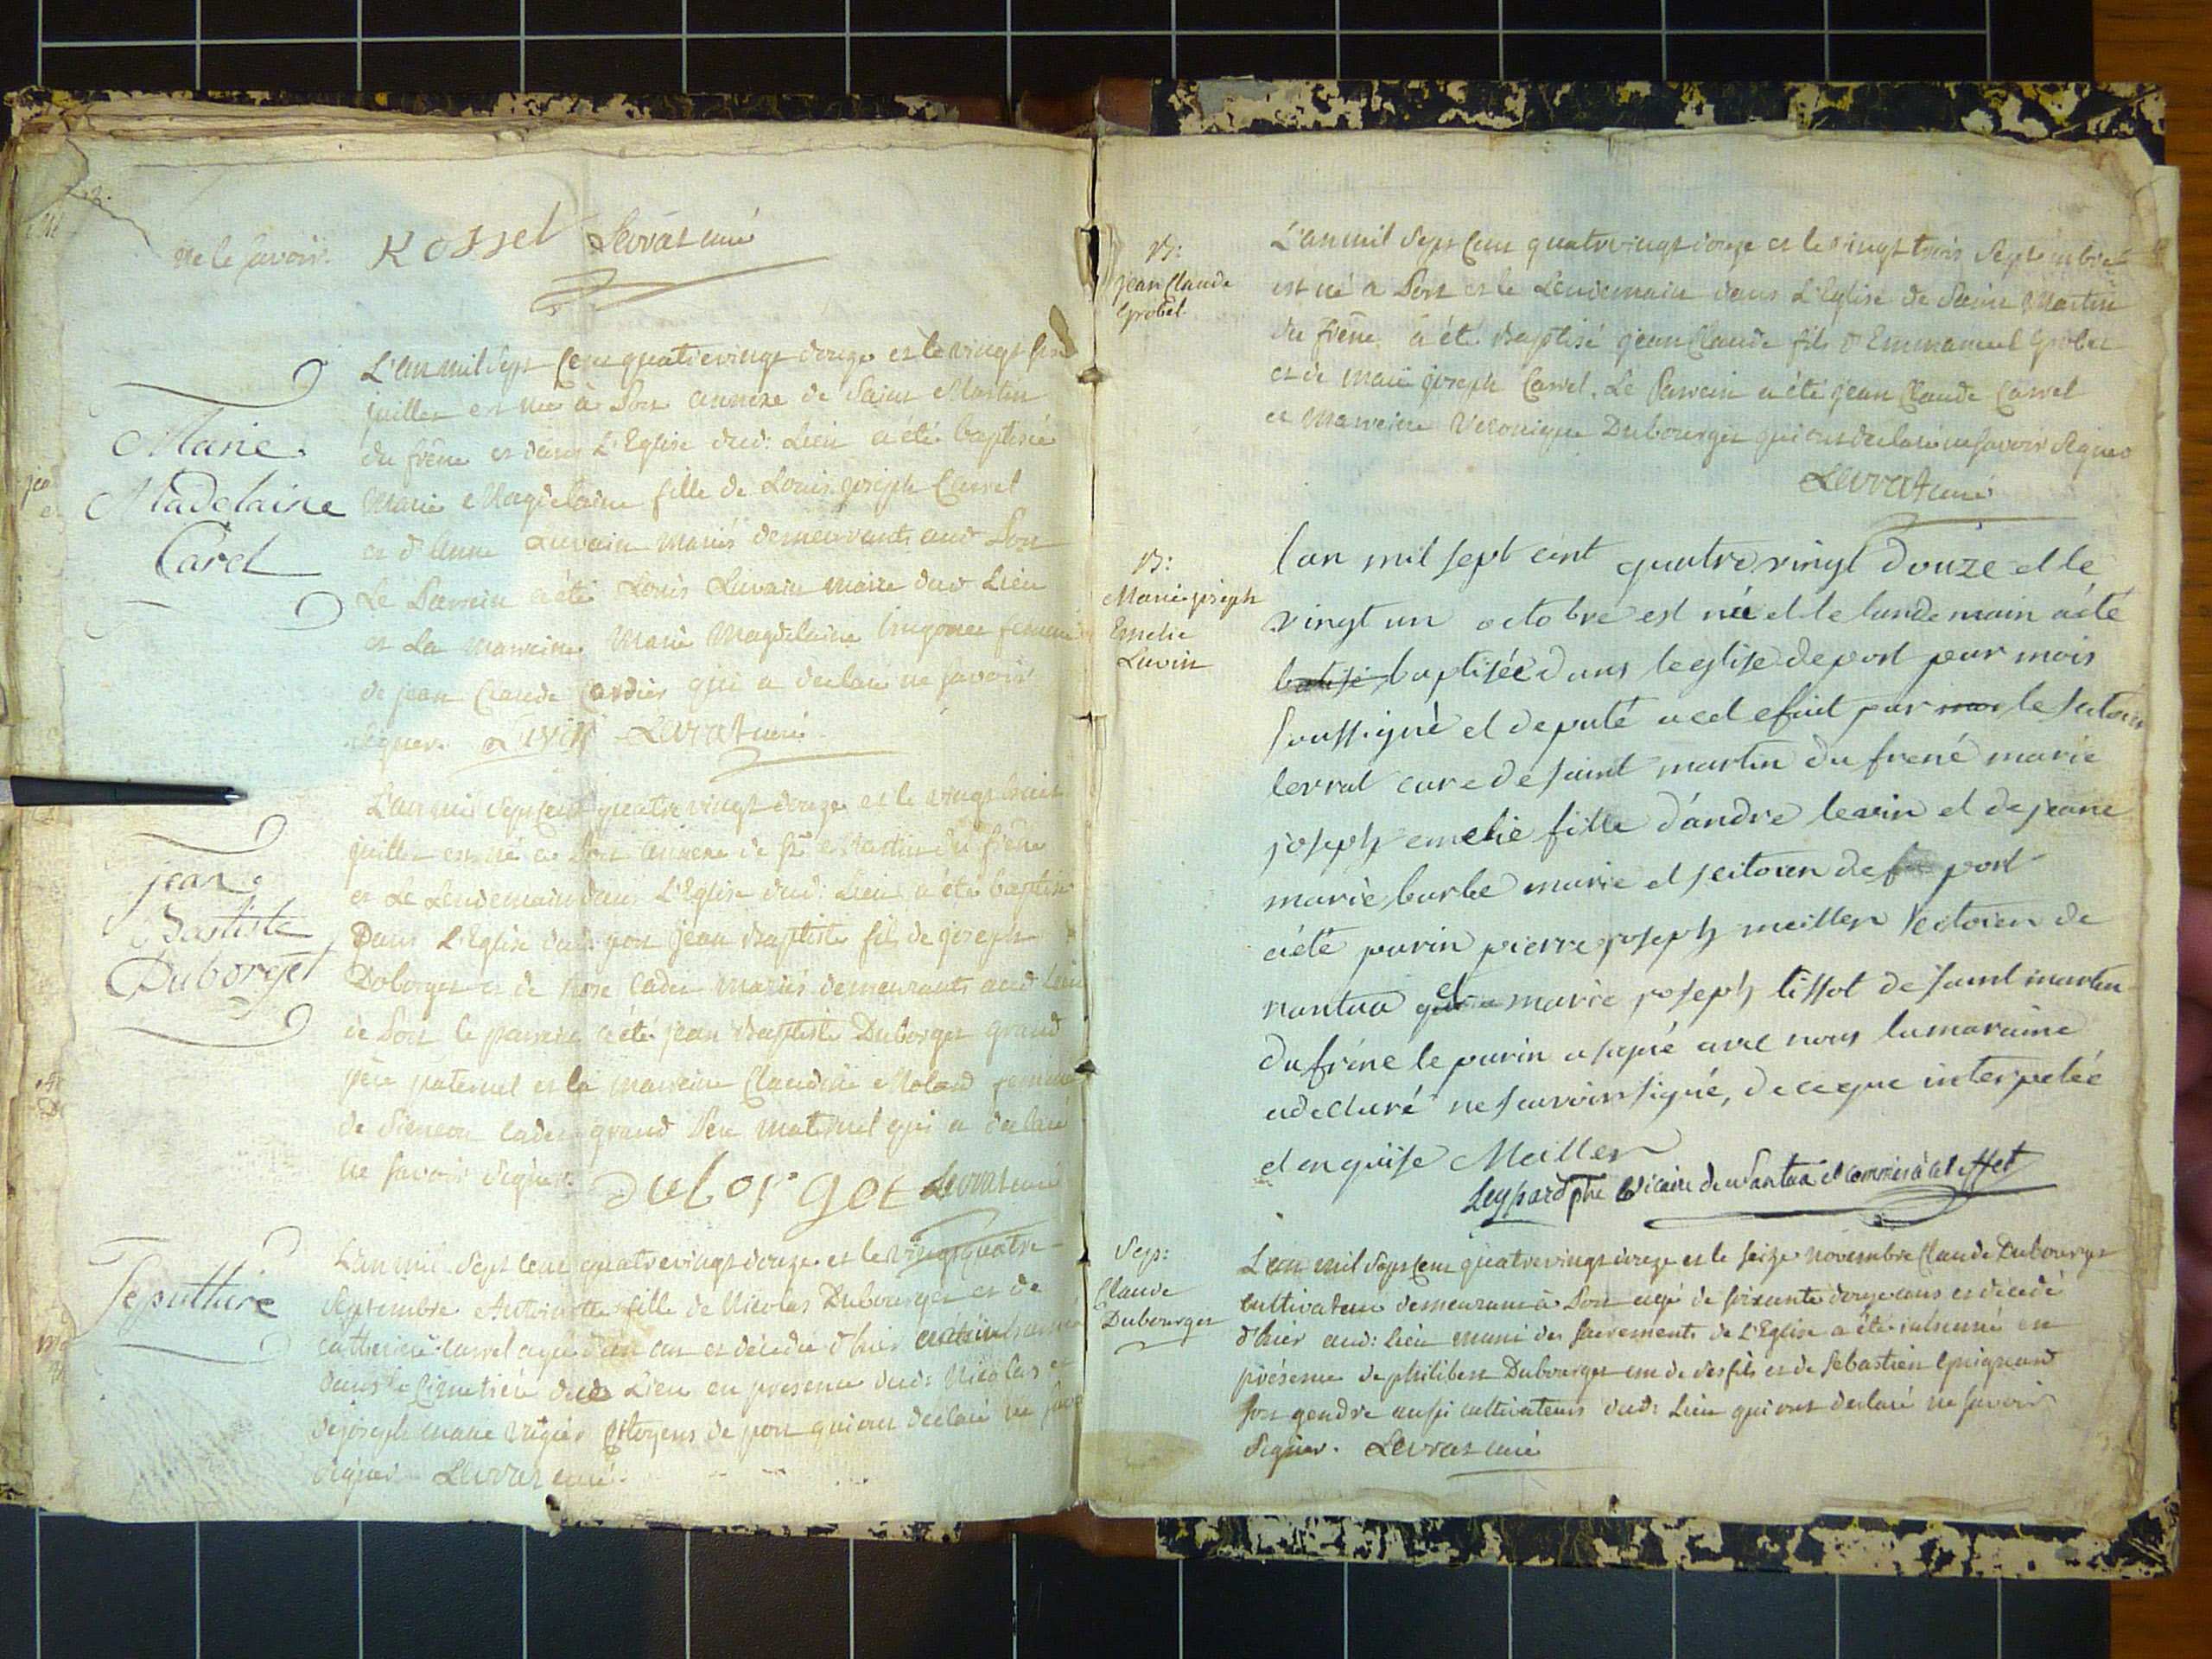 ne le savoir. Rosset Levrat curé
Marie
Madelaine
Carel
L'an mil sept cent quatrevingt douze et le vingt six
juillet est née à Port annexe de Saint Martin
du frêne et dans L'Eglise dud: Lieu a été baptisée
Marie Magdelaine fille de Louis joseph Carrel
et d'Anne Luvain mariés demeurants aud Port
Le Parrein a été Louis Luvain maire dud Lieu
et La marreine Marie Magdelaine femme
de jean Claude Cordier qui a declaré ne savoir
signer. Luvin Levrat curé
jean
Bastiste
Duborget
L'an mil sept cent quatre vingt douze et le vingt huit
juillet est né à Port annexe de St Martin du frêne
et Le Lendemain dans L'Eglise dud: Lieu a été baptisé
Dans L'Eglise dud: port jean Baptiste fils de joseph
Doborget et de Rose Cadet mariés demeurants aud Lieu
de Port le parrein a été jean Baptiste Duborget grand
père paternel et la marreine Claudine Moland femme
de Simeon Cadet grand Pere maternel qui a declaré
ne savoir signer. duborget Levrat curé
Sepulture
L'an mil sept cent quatrevingt douze et le vingt quatre
Septembre Antoinette fille de Nicolas Dubourget et de
catherine Carrel agée d'un an et décédée d'hier a été inhumée
dans le Cimetière dud: Lieu en presence dud: Nicolas et
de joseph marie Citoyens de port qui ont declaré ne savoir
signer Levrat curé.
B:
jean Claude
Grobel
L'an mil sept cent quatrevingt douze et le vingt trois Septembre
est né a Port et le Lendemain dans L'Eglise de Saint Martin
du frêne a été Baptisé jean Claude fils d'Emmanuel Grobet
et de Marie joseph Carrel. Le Parrein a été jean Claude Carrel
et Marreine Veronique Dubourget qui ont declaré ne savoir signer
Levrat curé
B:
Marie joseph
Emelie
Luvin
lan mil sept cent quatre vingt douze et le
vingt un octobre est née et le landemain a été
batisé baptisée dans leglise de port par mois
soussigné et deputé a cet efait par moi le sitoien
levrat cure de saint martin du frené marie
joseph emelie fille d'andre levin et de jeane
marie barbe marie et scitoien de port
a été parin pierre joseph meiller scitoien de
nantua et marie joseph tissot de saint martin
du fréne le parin a signé avec nous la maraine
a declaré ne savoir signé, de ce que interpelée
et enquise Meiller
Leyssard ptre vicaire de Nantua et commis à cet effet
Sep:
Claude
Dubourget
L'an mil sept cent quatrevingt douze et le seize novembre Claude Dubourget
cultivateur demeurant à Port agé de soixante douze ans et décedé
d'hier aud: Lieu muni des sacrements de L'Eglise a été inhumé en
présence de philibert Dubourget un de ses fils et de Sebastien Guignand
son gendre aussi cultivateurs dud: Lieu qui ont declaré ne savoir
signer. Levrat curé